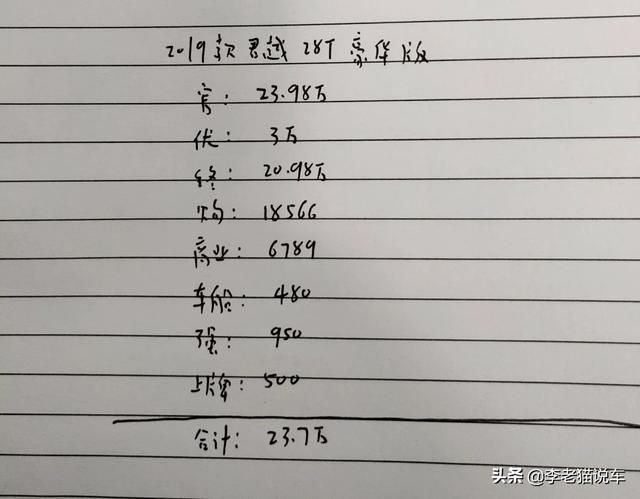 2019款君越 28T 豪华版
官: 23.98万
优: 3万
终: 20.98万
购: 18566
商业: 6789
车船: 480
强: 950
上牌: 500
合计: 23.7万
头条 @李老猫说车